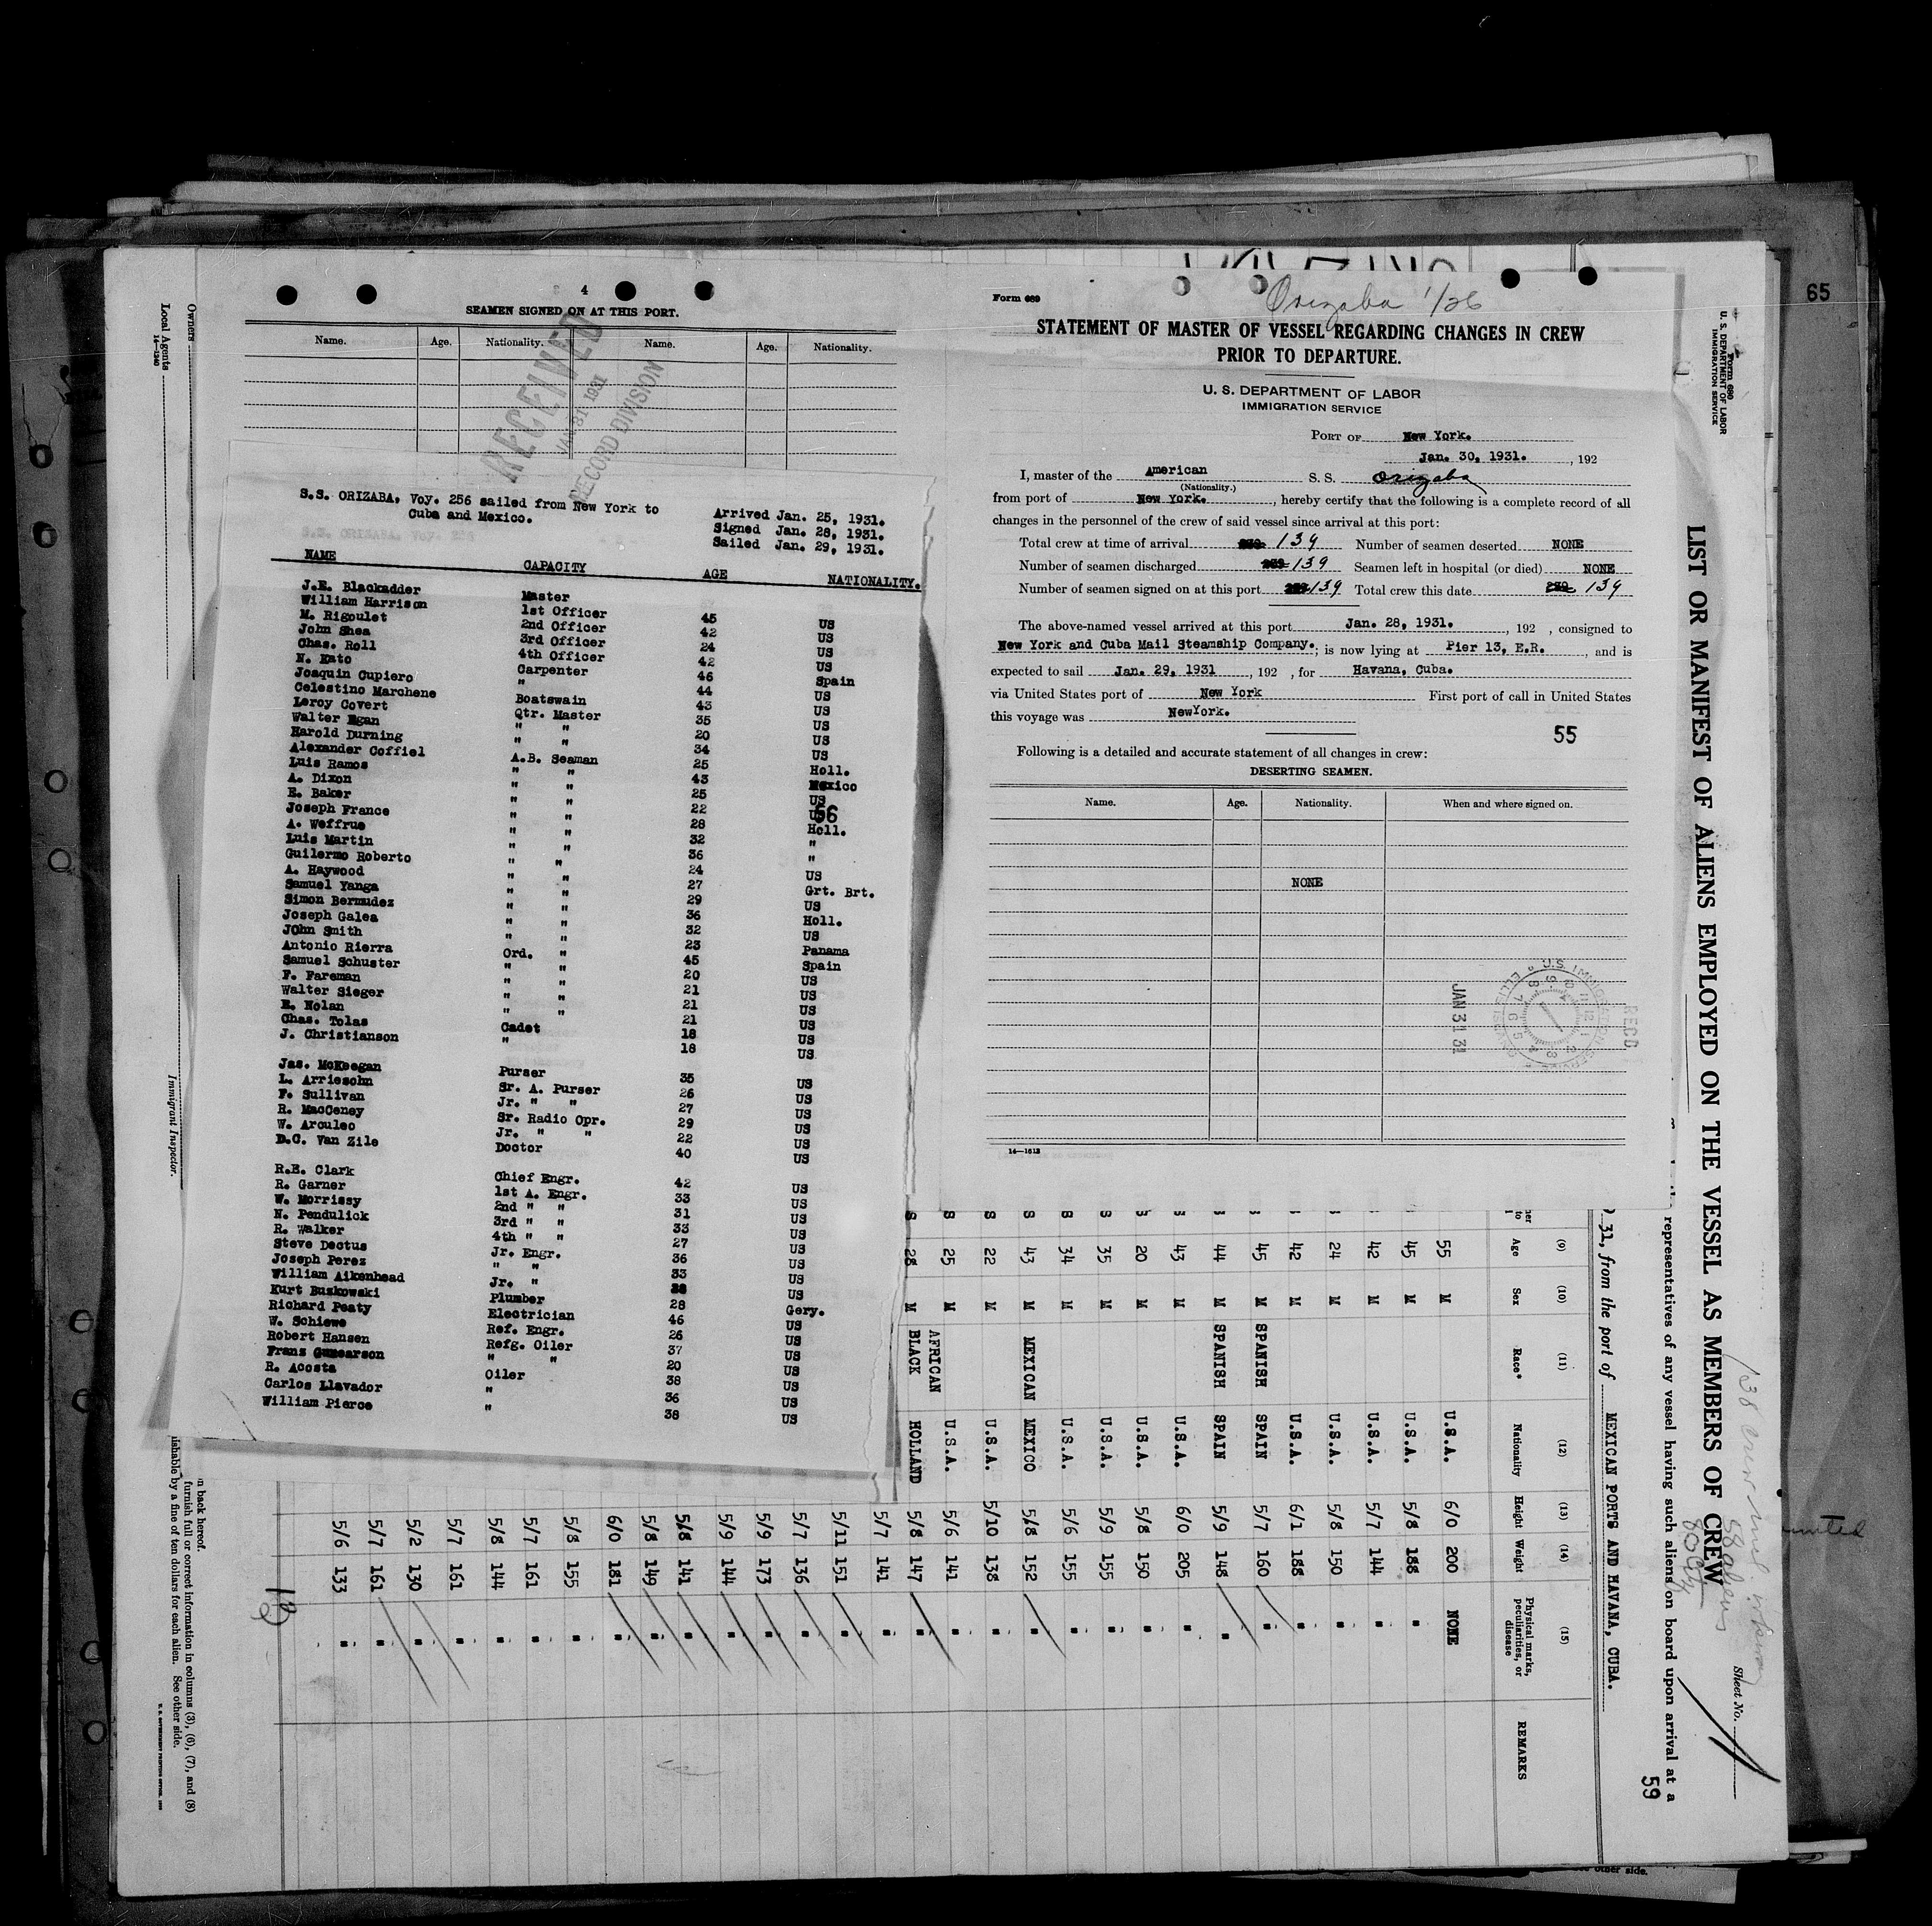 65
4
SEAMEN SIGNED ON AT THIS PORT.
Name. Age. Nationality. Name. Age. Nationality.
RECEIVED
JAN 31 1931
RECORD DIVISION
S.S. ORIZABA. Voy. 256 sailed from New York to
Cuba and Mexico.
Arrived Jan. 25, 1931.
Signed Jan. 28, 1931.
Sailed Jan. 29, 1931.
NAME CAPACITY AGE NATIONALITY.
J.E. Blackadder Master
William Harrison 1st Officer 45 US
M. Rigoulet 2nd Officer 42 US
John Shea 3rd Officer 24 US
Chas. Roll 4th Officer 42 US
N. Kato Carpenter 46 Spain
Joaquin Cupiero " 44 US
Celestino Marchene Boatswain 43 US
Leroy Covert Qtr. Master 35 US
Walter Egan " " 20 US
Harold Durning " " 34 US
Alexander Coffiel A.B. Seaman 25 Holl.
Luis Ramos " " 43 Mexico
A. Dixon " " 25 US
E. Baker " " 22 US
56
Joseph France " " 28 Holl.
A. Weffrue " " 32 "
Luis Martin " " 36 "
Guilermo Roberto " " 24 US
A. Haywood " " 27 Grt. Brt.
Samuel Yanga " " 29 US
Simon Bermudez " " 36 Holl.
Joseph Galea " " 32 US
JOhn Smith " " 23 Panama
Antonio Rierra Ord. " 45 Spain
Samuel Schuster " " 20 US
F. Fareman " " 21 US
Walter Sieger " " 21 US
E. Nolan " " 21 US
Chas. Tolas Cadet 18 US
J. Christianson " 18 US
Jas. McKeegan Purser 35 US
L. Arriesohn Sr. A. Purser 26 US
F. Sullivan Jr. " " 27 US
R. MacCeney Sr. Radio Opr. 29 US
W. Arculeo Jr. " " 22 US
D.C. Van Zile Doctor 40 US
R.E. Clark Chief Engr. 42 US
R. Garner 1st A. Engr. 33 US
W. Morrissy 2nd " " 31 US
N. Pendulick 3rd " " 33 US
R. Walker 4th " " 27 US
Steve Dectus Jr. Engr. 36 US
Joseph Perez " " 33 US
William Aikenhead Jr. " 38 US
Kurt Buzkowski Plumber 28 Gery.
Richard Peaty Electrician 46 US
W. Schiewe Ref. Engr. 26 US
Robert Hansen Refg. Oiler 37 US
Franz " " 20 US
R. Acosta Oiler 38 US
Carlos Llavador " 36 US
William Pierce " 38 US
Form 689
Orizaba 1/26
STATEMENT OF MASTER OF VESSEL REGARDING CHANGES IN CREW
PRIOR TO DEPARTURE.
U. S. DEPARTMENT OF LABOR
IMMIGRATION SERVICE
PORT OF New York.
Jan. 30, 1931. , 192
I, master of the American S. S. Orizaba
(Nationality.)
from port of New York. , hereby certify that the following is a complete record of all
changes in the personnel of the crew of said vessel since arrival at this port:
Total crew at time of arrival 139 Number of seamen deserted NONE
Number of seamen discharged 139 Seamen left in hospital (or died) NONE
Number of seamen signed on at this port 139 Total crew this date 139
The above-named vessel arrived at this port Jan. 28, 1931. , 192 , consigned to
New York and Cuba Mail Steamship Company. ; is now lying at Pier 13, E.R. , and is
expected to sail Jan. 29, 1931 , 192 , for Havana, Cuba.
via United States port of New York First port of call in United States
this voyage was NewYork.
55
Following is a detailed and accurate statement of all changes in crew:
DESERTING SEAMEN.
Name. Age. Nationality. When and where signed on.
NONE
JAN 31 31
RECD
14—1613
Form 680
U. S. DEPARTMENT OF LABOR
IMMIGRATION SERVICE
Sheet No.
LIST OR MANIFEST OF ALIENS EMPLOYED ON THE VESSEL AS MEMBERS OF CREW
representatives of any vessel having such aliens on board upon arrival at a
59
31, from the port of MEXICAN PORTS AND HAVANA, CUBA.
(9) (10) (11) (12) (13) (14) (15)
Age Sex Race* Nationality Height Weight Physical marks, peculiarities, or disease REMARKS
55 M U.S.A. 6/0 200 NONE
45 M U.S.A. 5/8 188 "
42 M U.S.A. 5/7 144 "
24 M U.S.A. 5/8 150 "
42 M U.S.A. 6/1 188 "
45 M SPANISH SPAIN 5/7 160 "
44 M SPANISH SPAIN 5/9 148 "
43 M U.S.A. 6/0 205 "
20 M U.S.A. 5/8 150 "
35 M U.S.A. 5/9 155 "
34 M U.S.A. 5/6 155 "
43 M MEXICAN MEXICO 5/8 152 "
22 M U.S.A. 5/10 138 "
25 M U.S.A. 5/6 141 "
28 M AFRICAN BLACK HOLLAND 5/8 147 "
5/7 141 "
5/11 151 "
5/7 136 "
5/9 173 "
5/9 144 "
5/8 141 "
5/8 149 "
6/0 181 "
5/8 155 "
5/7 161 "
5/8 144 "
5/7 161 "
5/2 130 "
5/7 161 "
5/6 133 "
n back hereof.
furnish full or correct information in columns (3), (6), (7), and (8)
ishable by a fine of ten dollars for each alien. See other side.
Owners
Local Agents
14—1240
Immigrant Inspector.
other side.